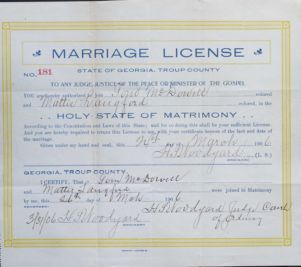 MARRIAGE LICENSE
No. 181
STATE OF GEORGIA, TROUP COUNTY
TO ANY JUDGE, JUSTICE OF THE PEACE OR MINISTER OF THE GOSPEL
YOU are hereby authorized to join Tom McDowell colored
and Mattie Langford colored, in the
HOLY STATE OF MATRIMONY
According to the Constitution and Laws of this State; and for so doing this shall be your sufficient License.
And you are hereby required to return this License to me, with your certificate hereon of the fact and date of the
marriage.
Given under my hand and seal, this 24th day of March 1906
H.T. Woodyard (L. S.)
GEORGIA, TROUP COUNTY.
I CERTIFY, That Tom McDowell
and Mattie Langford were joined in Matrimony
by me, this day of Mch 1906
3/ /06 H.T. Woodyard H.T. Woodyard Judge Court
of Ordinary